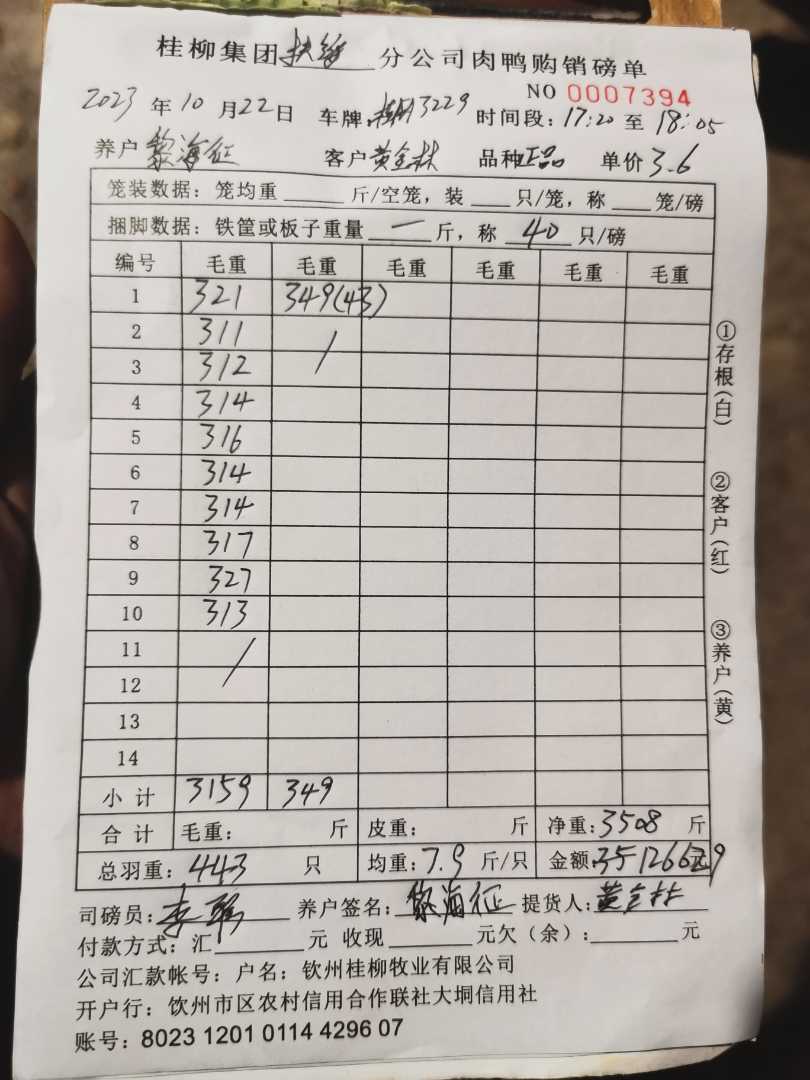 桂柳集团扶绥分公司肉鸭购销磅单
NO 0007394
2023年10月22日 车牌:3229 时间段:17:20至18:05
养户黎海征 客户黄全林 品种正品 单价3.6
笼装数据:笼均重 斤/空笼,装 只/笼,称 笼/磅
捆脚数据:铁筐或板子重量 一 斤,称 40 只/磅
编号 毛重 毛重 毛重 毛重 毛重 毛重
1 321 349(43)
2 311 /
3 312
4 314
5 316
6 314
7 314
8 317
9 327
10 313
11 /
12
13
14
小计 3159 349
合计 毛重: 斤 皮重: 斤 净重:3508 斤
总羽重:443 只 均重:7.9 斤/只 金额: 元
司磅员:李 养户签名:黎海征 提货人:黄全林
付款方式:汇 元 收现 元欠(余): 元
公司汇款帐号:户名:钦州桂柳牧业有限公司
开户行:钦州市区农村信用合作联社大垌信用社
账号:8023 1201 0114 4296 07
①存根(白)
②客户(红)
③养户(黄)